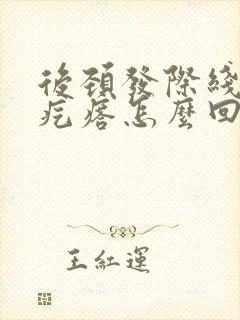 後頸發際綫
疙瘩怎麼回
王紅運